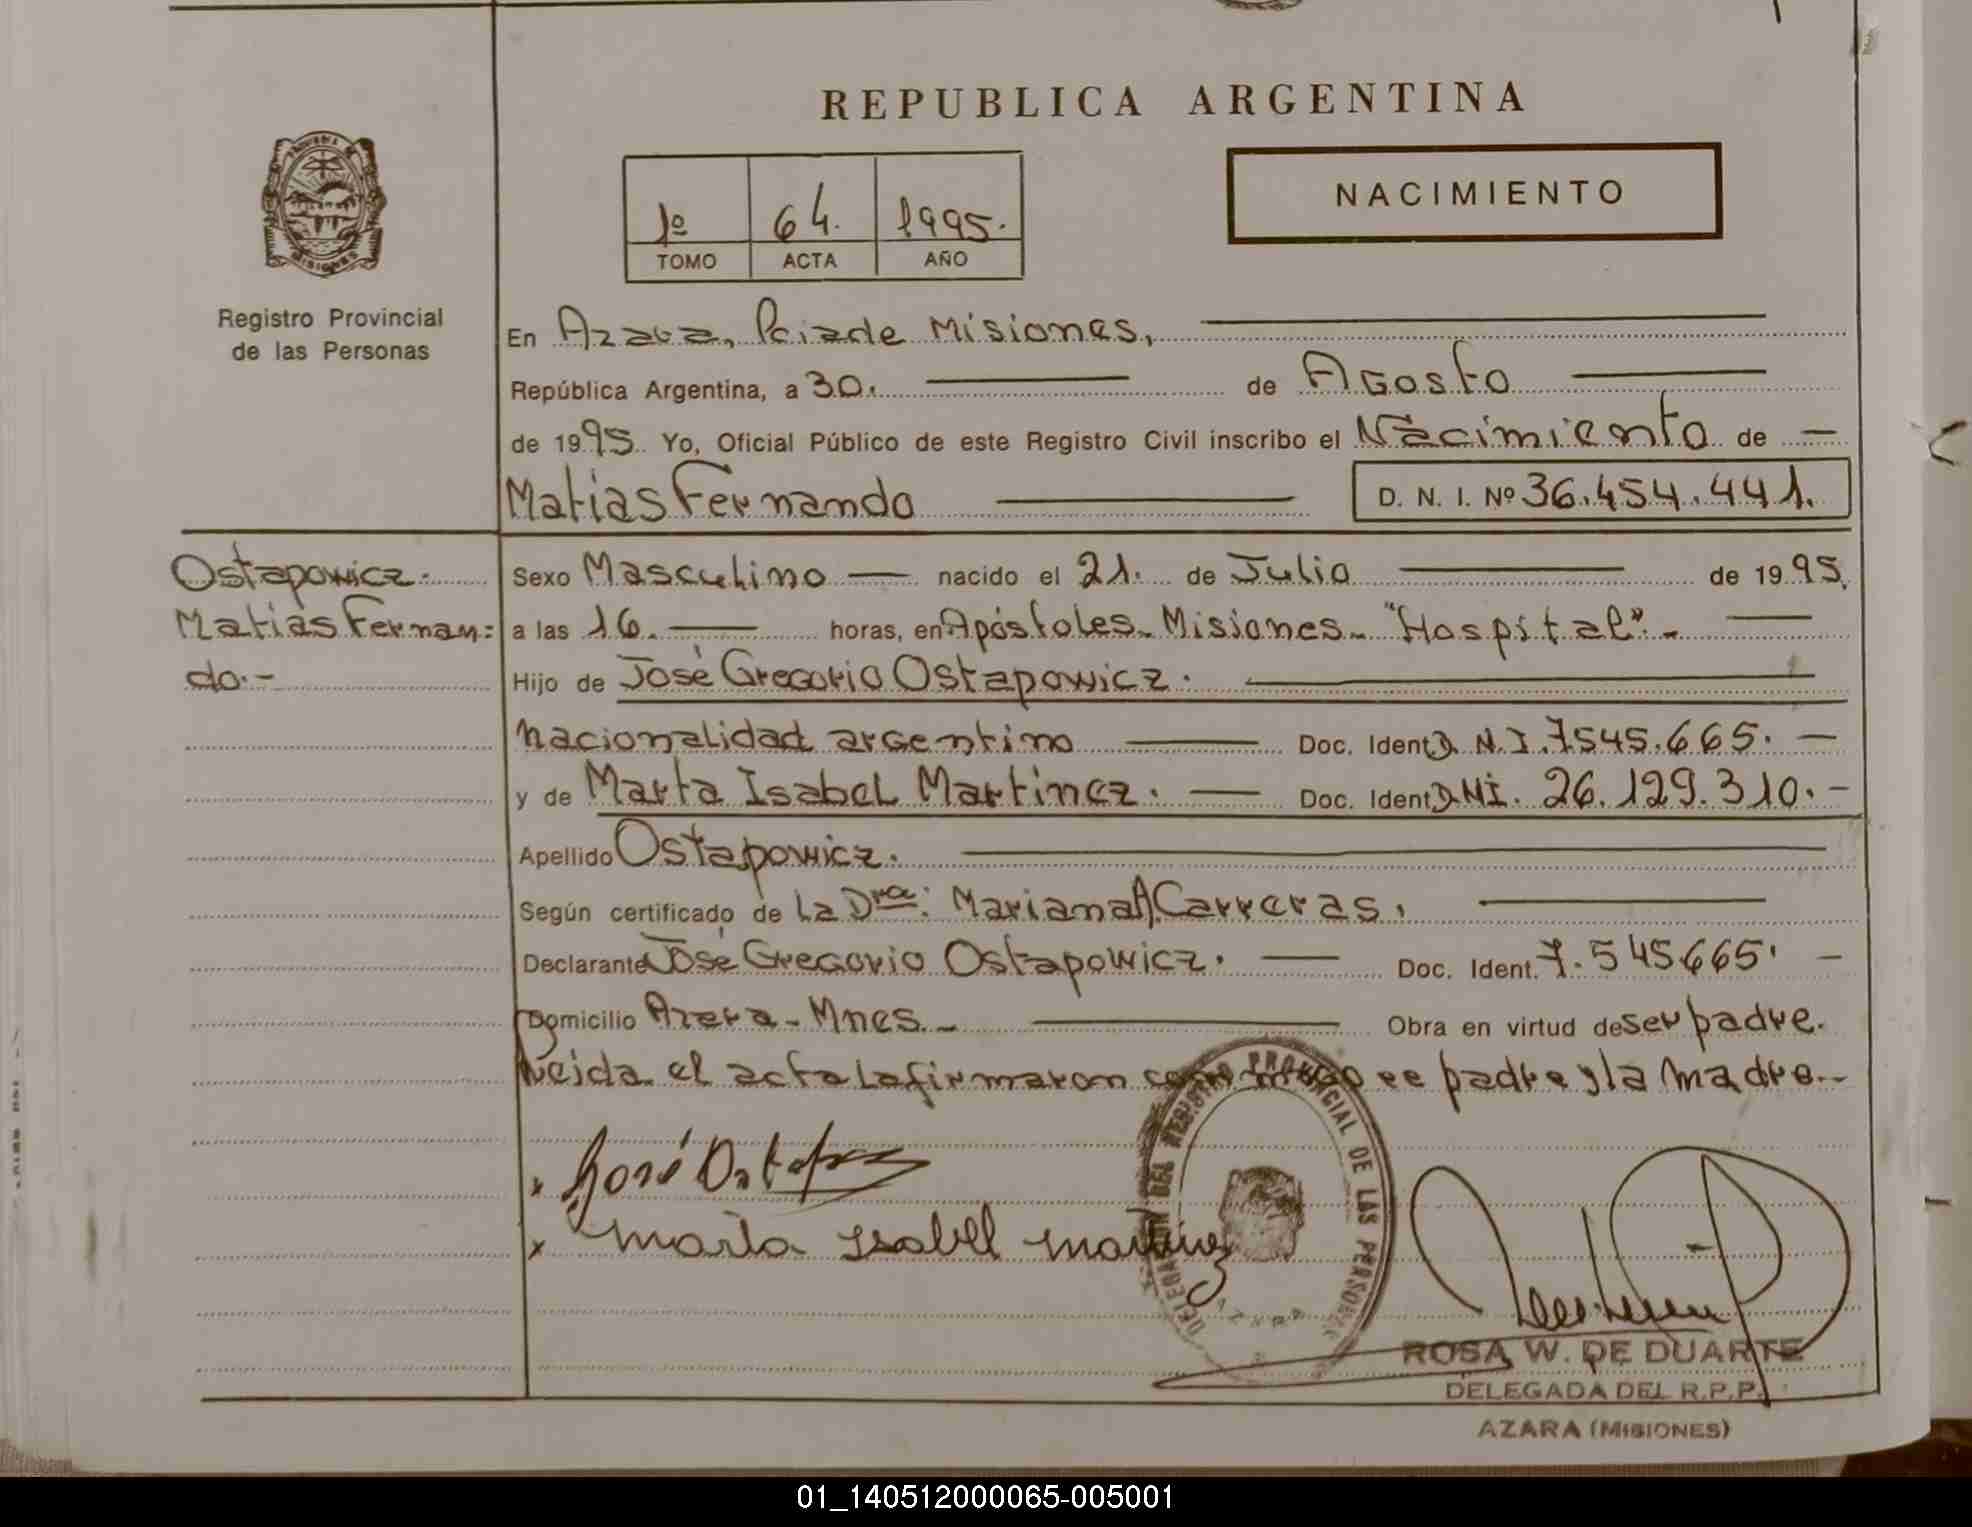 REPUBLICA ARGENTINA
NACIMIENTO
1º 64. 1995.
TOMO ACTA AÑO
PROVINCIA DE
MISIONES
Registro Provincial
de las Personas
En Azara, Pcia de Misiones,
República Argentina, a 30. de Agosto
de 1995. Yo, Oficial Público de este Registro Civil inscribo el Nacimiento de —
Matias Fernando D. N. I. Nº 36.454.441.
Ostapowicz.
Matias Fernan=
do.-
Sexo Masculino — nacido el 21. de Julio de 1995,
a las 16. horas, en Apóstoles - Misiones - "Hospital". -
Hijo de José Gregorio Ostapowicz.
nacionalidad argentino — Doc. Ident. D. N. I. 7545.665. —
y de Marta Isabel Martinez. — Doc. Ident. DNI. 26.129.310. -
Apellido Ostapowicz.
Según certificado de La Dra: Mariana A. Carreras,
Declarante José Gregorio Ostapowicz. — Doc. Ident. 7.545.665. —
Domicilio Azara - Mnes. - Obra en virtud de ser padre.
Leida el acta la firmaron conmigo ee padre y la madre. -
x José Ostap
x Marta Isabel Martinez
DELEGACION DEL REGISTRO PROVINCIAL DE LAS PERSONAS
AZARA
ROSA W. DE DUARTE
DELEGADA DEL R.P.P.
AZARA (MISIONES)
01_140512000065-005001